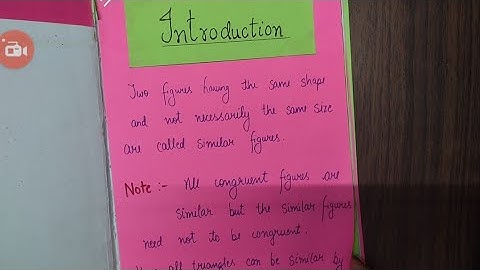 Introduction
Two figures having the same shape
and not necessarily the same size
are called similar figures.
Note :- All congruent figures are
similar but the similar figures
need not to be congruent.
all triangles can be similar by